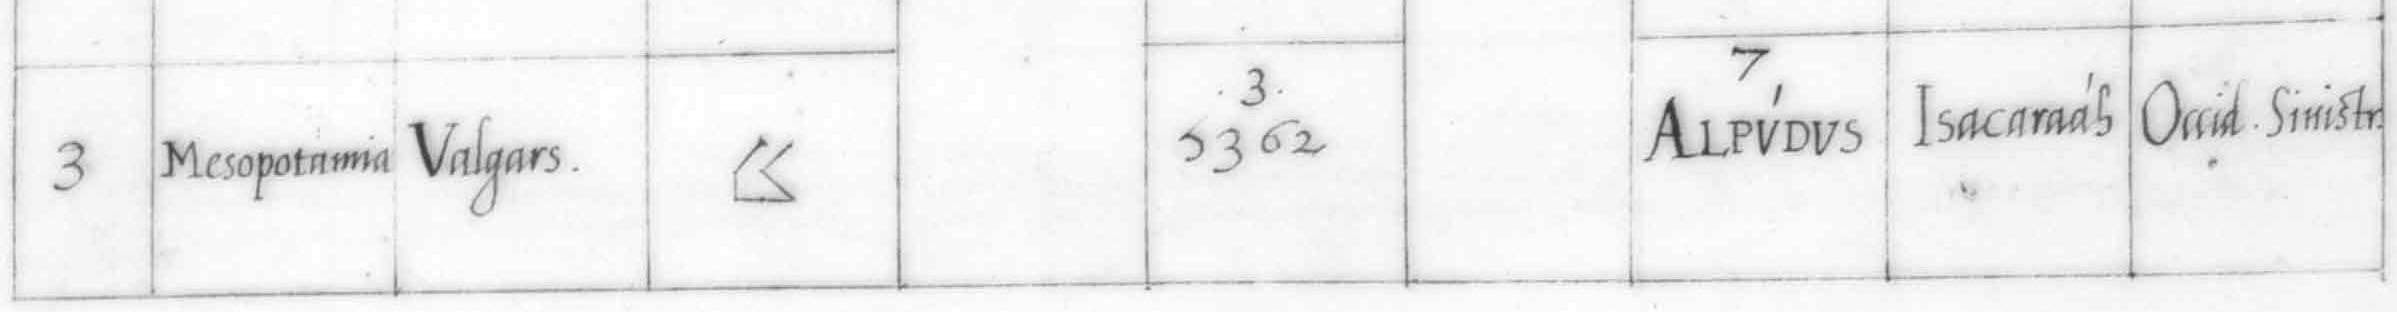 3 Mesopotamia Valgars. .3. 7
5362 ALPÚDUS Isacaraáh Occid. Sinistr.